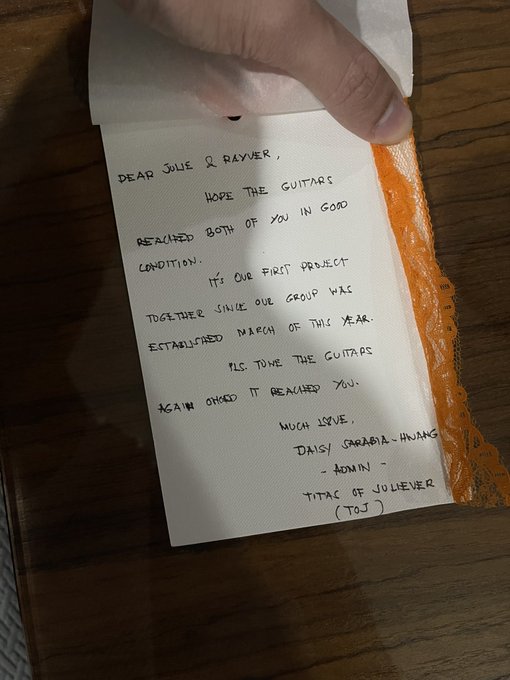 DEAR JULIE & RAYVER,
HOPE THE GUITARS
REACHED BOTH OF YOU IN GOOD
CONDITION.
IT'S OUR FIRST PROJECT
TOGETHER SINCE OUR GROUP WAS
ESTABLISHED MARCH OF THIS YEAR.
PLS. TUNE THE GUITARS
AGAIN IT REACHED YOU.
MUCH LOVE,
DAISY SARABIA-HWANG
- ADMIN -
TITAS OF JULIEVER
(TOJ)